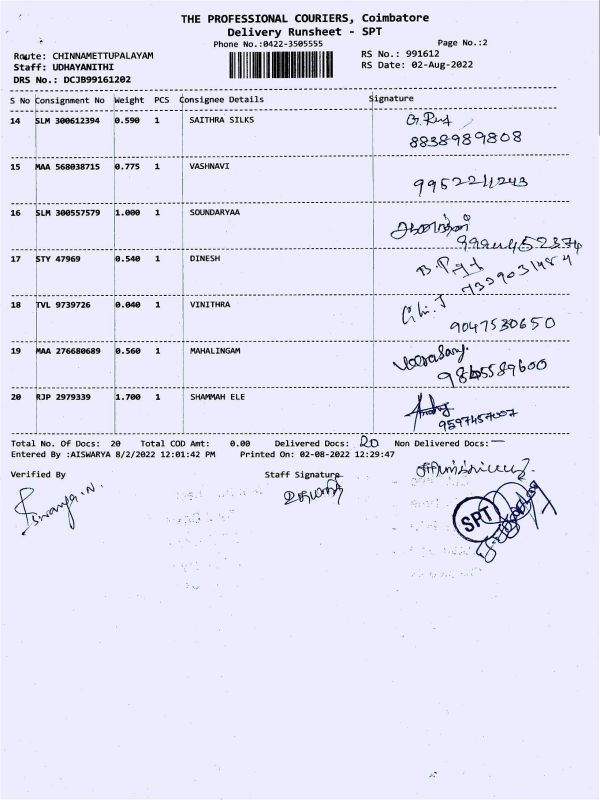 THE PROFESSIONAL COURIERS, Coimbatore
Delivery Runsheet - SPT
Phone No.:0422-3505555 Page No.:2
Route: CHINNAMETTUPALAYAM RS No.: 991612
Staff: UDHAYANITHI RS Date: 02-Aug-2022
DRS No.: DCJB99161202
S No Consignment No Weight PCS Consignee Details Signature
14 SLM 300612394 0.590 1 SAITHRA SILKS
8838989808
15 MAA 568038715 0.775 1 VASHNAVI
9952211243
16 SLM 300557579 1.000 1 SOUNDARYAA
17 STY 47969 0.540 1 DINESH
18 TVL 9739726 0.040 1 VINITHRA
9047530650
19 MAA 276680689 0.560 1 MAHALINGAM
20 RJP 2979339 1.700 1 SHAMMAH ELE
9597457007
Total No. Of Docs: 20 Total COD Amt: 0.00 Delivered Docs: 20 Non Delivered Docs: —
Entered By :AISWARYA 8/2/2022 12:01:42 PM Printed On: 02-08-2022 12:29:47
Verified By Staff Signature
SPT